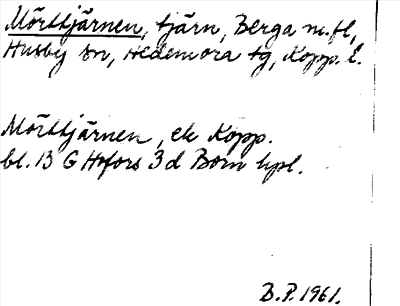 Mörttjärnen, tjärn, Berga m.fl,
Husby sn, Hedemora tg, Kopp. l.
Mörttjärnen, ek Kopp.
bl. 13 G Hofors 3 d Born hpl.
B.P. 1961.